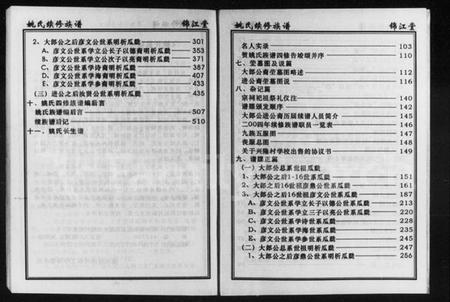 姚氏续修族谱 锦江堂
2、大郎公之后彦文公世系明析瓜瓞 301
A、彦文公世系学立公长子以德裔明析瓜瓞 353
B、彦文公世系学立公次子以亮裔明析瓜瓞 371
C、彦文公世系学诗裔明析瓜瓞 387
D、彦文公世系学海裔明析瓜瓞 407
E、彦文公世系学参裔明析瓜瓞 433
(三)进公之后孜贤公世系明析瓜瓞 435
十、姚氏四修族谱编后言
姚氏族谱编后言 507
续族谱后记 510
十一、姚氏长生谱
姚氏续修族谱 锦江堂
名人实录 103
贺姚氏族谱四修告竣颂并序 110
七、茔墓图及说篇
大郎公裔茔墓图略述 112
进公裔茔墓图说 116
八、杂记篇
京祠祀祖祭礼仪注 140
谱牒颁发顺序 142
大郎公进公裔历届续谱人员简介 145
二00四年续修族谱职员一览表 146
九族五服图 147
丧服总图 148
关于兴隆村学校出售的协议书 149
九、谱牒正篇
(一)大郎公总系世祖瓜瓞
1、大郎公之后1-16世系瓜瓞 151
2、大郎公之后16世祖彦彝公世系瓜瓞 161
3、大郎公之后16世祖彦文公世系瓜瓞 187
A、彦文公世系学立长子以德公世系瓜瓞 213
B、彦文公世系学立三子以亮公世系瓜瓞 220
C、彦文公世系学诗世系瓜瓞 228
D、彦文公世系学海世系瓜瓞 235
E、彦文公世系学参世系瓜瓞 245
(二)大郎公总系世祖明析瓜瓞 247
1、大郎公之后彦彝公世系明析瓜瓞 256